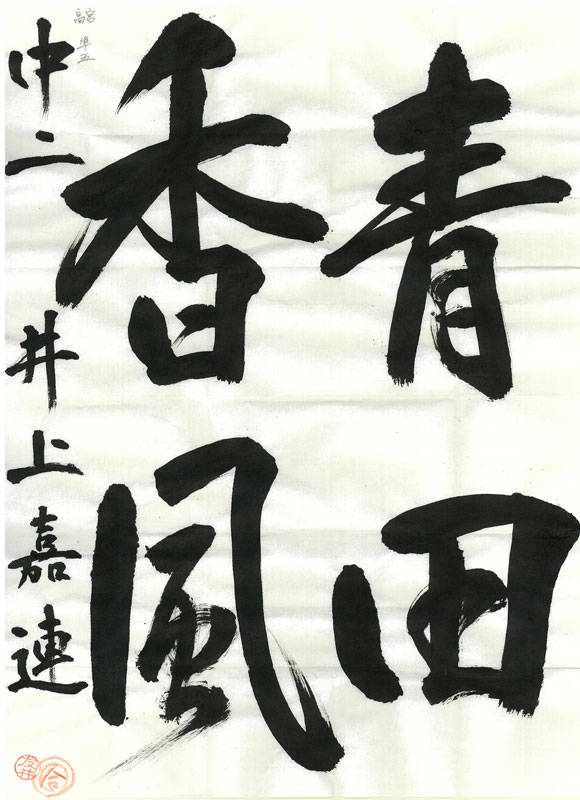 青田
香風
高宮
準五
中二 井上嘉連
合